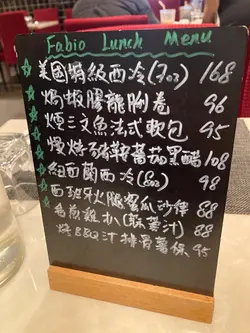 Fabio Lunch Menu
美國特級西冷(7oz) 168
焗龍脷卷 96
煙三文魚法式軟包 95
慢烤豬鞍蕃茄黑醋 108
紐西蘭西冷(5oz) 98
西班牙火腿蜜瓜沙律 88
香煎雞扒(汁) 88
烤BBQ汁排骨薯條 95